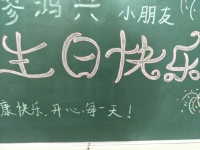 鸿兴 小朋友
生日快乐
康快乐、开心每一天！